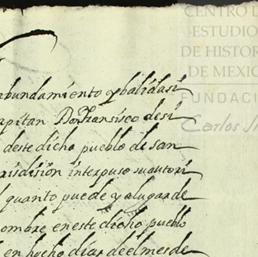 CENTRO D
ESTUDIO
DE HISTOR
DE MEXIC
FUNDACI
Carlos Sl
abundamiento y balidasi
apitan Don fransisco desi
deste dicho pueblo de san
risdision interpuso su autori
quanto puede y a lugar de
ombre en este dicho pueblo
en hocho dias de el mes de